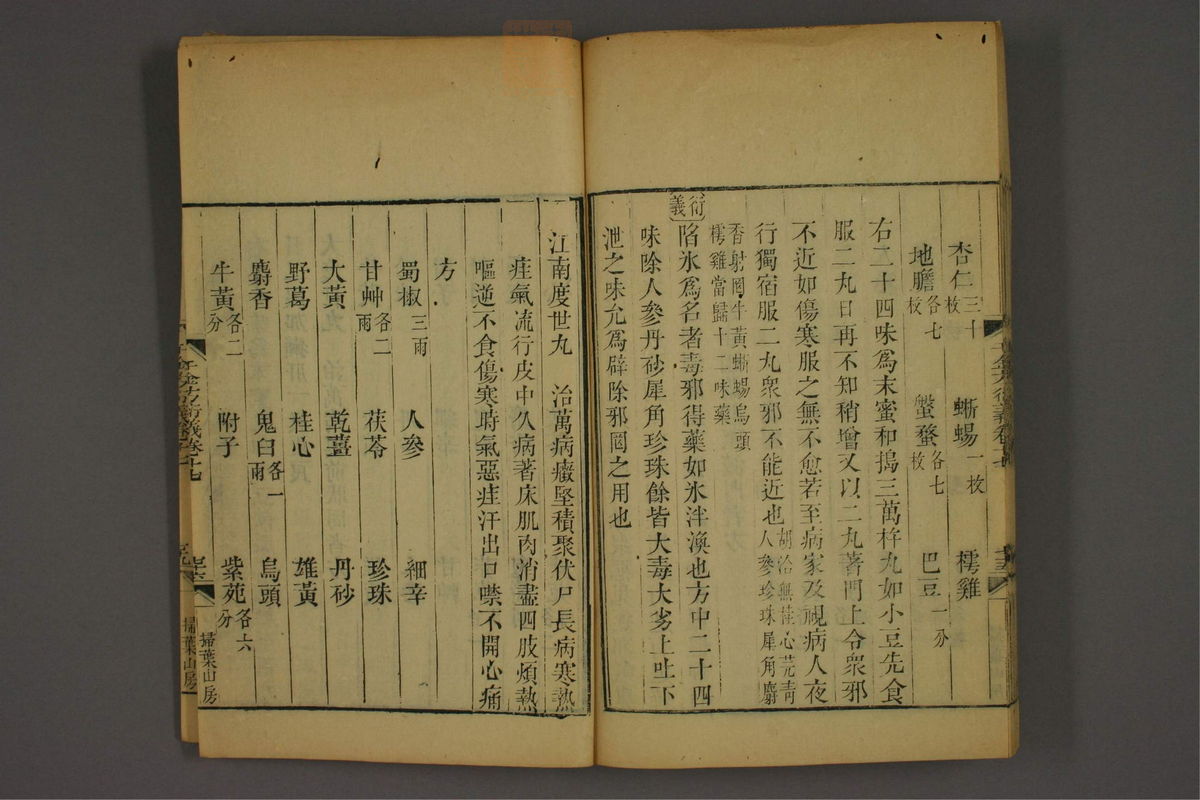 杏仁三十枚　蜥蜴一枚　樗雞
地膽各七枚　蟹螯各七枚　巴豆一分
右二十四味爲末蜜和搗三萬杵丸如小豆先食
服二丸日再不知稍增又以二丸著門上令衆邪
不近如傷寒服之無不愈若至病家及視病人夜
行獨宿服二丸衆邪不能近也胡洽無桂心芫青人參珍珠犀角麝
香射罔牛黃蜥蜴烏頭樗雞當歸十二味藥
衍義
陷氷爲名者毒邪得藥如氷泮渙也方中二十四
味除人參丹砂犀角珍珠餘皆大毒大劣上吐下
泄之味允爲辟除邪罔之用也
江南度世丸　治萬病癥堅積聚伏尸長病寒熱
疰氣流行皮中久病著床肌肉消盡四肢煩熱
嘔逆不食傷寒時氣惡疰汗出口噤不開心痛
方
蜀椒三兩　人參　細辛
甘艸各二兩　茯苓　珍珠
大黃　乾薑　丹砂
野葛　桂心　雄黃
麝香　鬼臼各一兩　烏頭
牛黃各二分　附子　紫苑各六分
千金方衍義卷十七
掃葉山房
掃葉山房